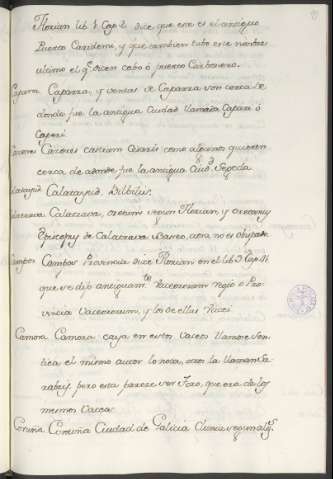 Florian lib. 1. Cap. 2. dice que este es el antiguo
Puerto Carideno, y que tambien tubo este nombre
ultimo el q.e dicen cabo ó puerto Carbonero.
Caparra Caparra, y ventas de Caparra son cerca de
donde fue la antigua Ciudad llamada Capara ó
Caperi
Cáceres Castrum Cesaris como algunos quieren
cerca de adonde fue la antigua Ciud.d Segeda
Calatayud Calatayud. Bilbilis.
Calatrava, oretum segun Florian, y
de Calatrava no es Obispado
Campos Campos Provincia dice Florian en el lib. 3. Cap. 41.
que se dijo antiguam.te Vaceorum regio ó Pro
vincia Vaceorum, y los de ellos Vaccei
Camora Camora caya en estos Vaceos llamose Sen
tica el mismo autor lo nota, otros la llaman Sa
rabris pero esta parece ser Toro, que era de los
mismos Vaceos.
Coruña Coruña Ciudad de Galicia Clunia segun alg.s